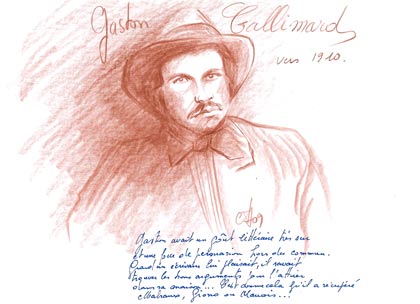 Gaston Gallimard
vers 1910.
Gaston avait un goût littéraire très sûr
et une force de persuasion hors du commun.
Quand un écrivain lui plaisait, il savait
trouver les bons arguments pour l'attirer
dans sa maison... C'est comme cela qu'il a récupéré
Malraux, Giono ou Mauriac...